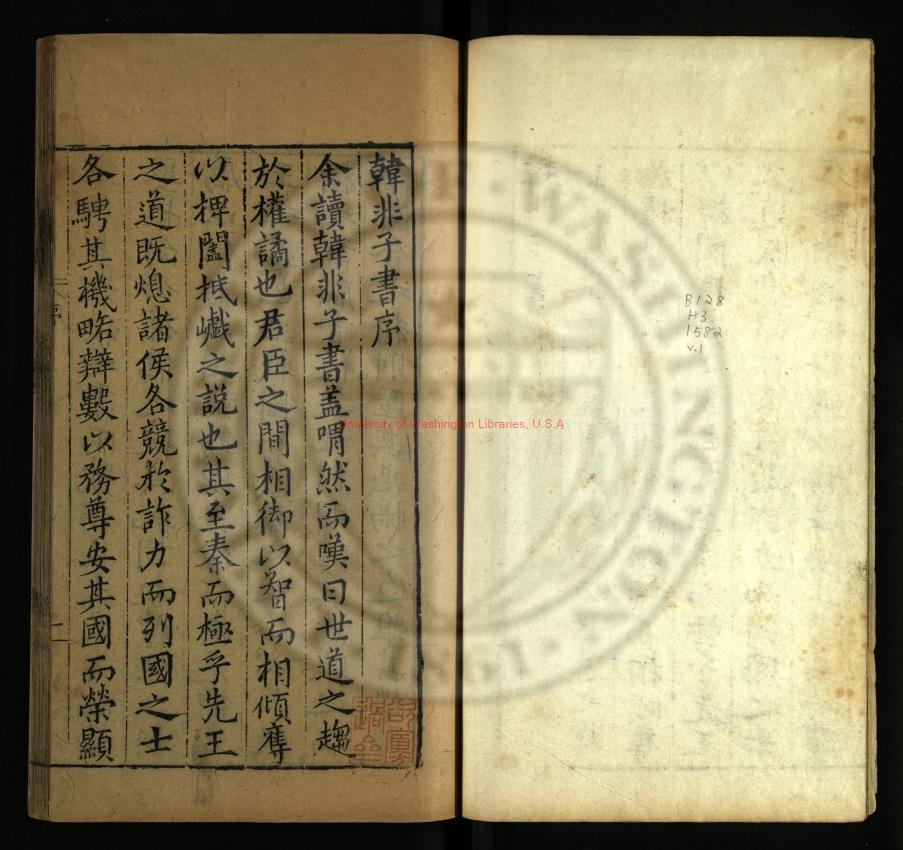 韓非子書序
余讀韓非子書蓋喟然而嘆曰世道之趨
於權譎也君臣之間相御以智而相傾奪
以捭闔抵巇之說也其至秦而極乎先王
之道既熄諸侯各競於詐力而列國之士
各騁其機略辯數以務尊安其國而榮顯
序
一
B128
H3
1582
v.1
University of Washington Libraries, U.S.A
WASHINGTON